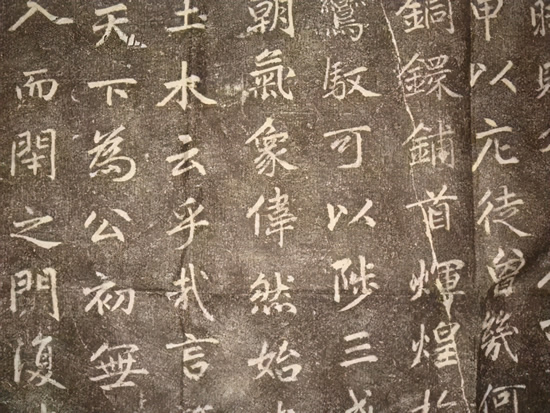 甲以庀徒曾幾何
銅鐶鋪首煇煌
鸞馭可以陟三
朝氣象偉然始
土木云乎哉言
天下為公初無
入而閇之門復